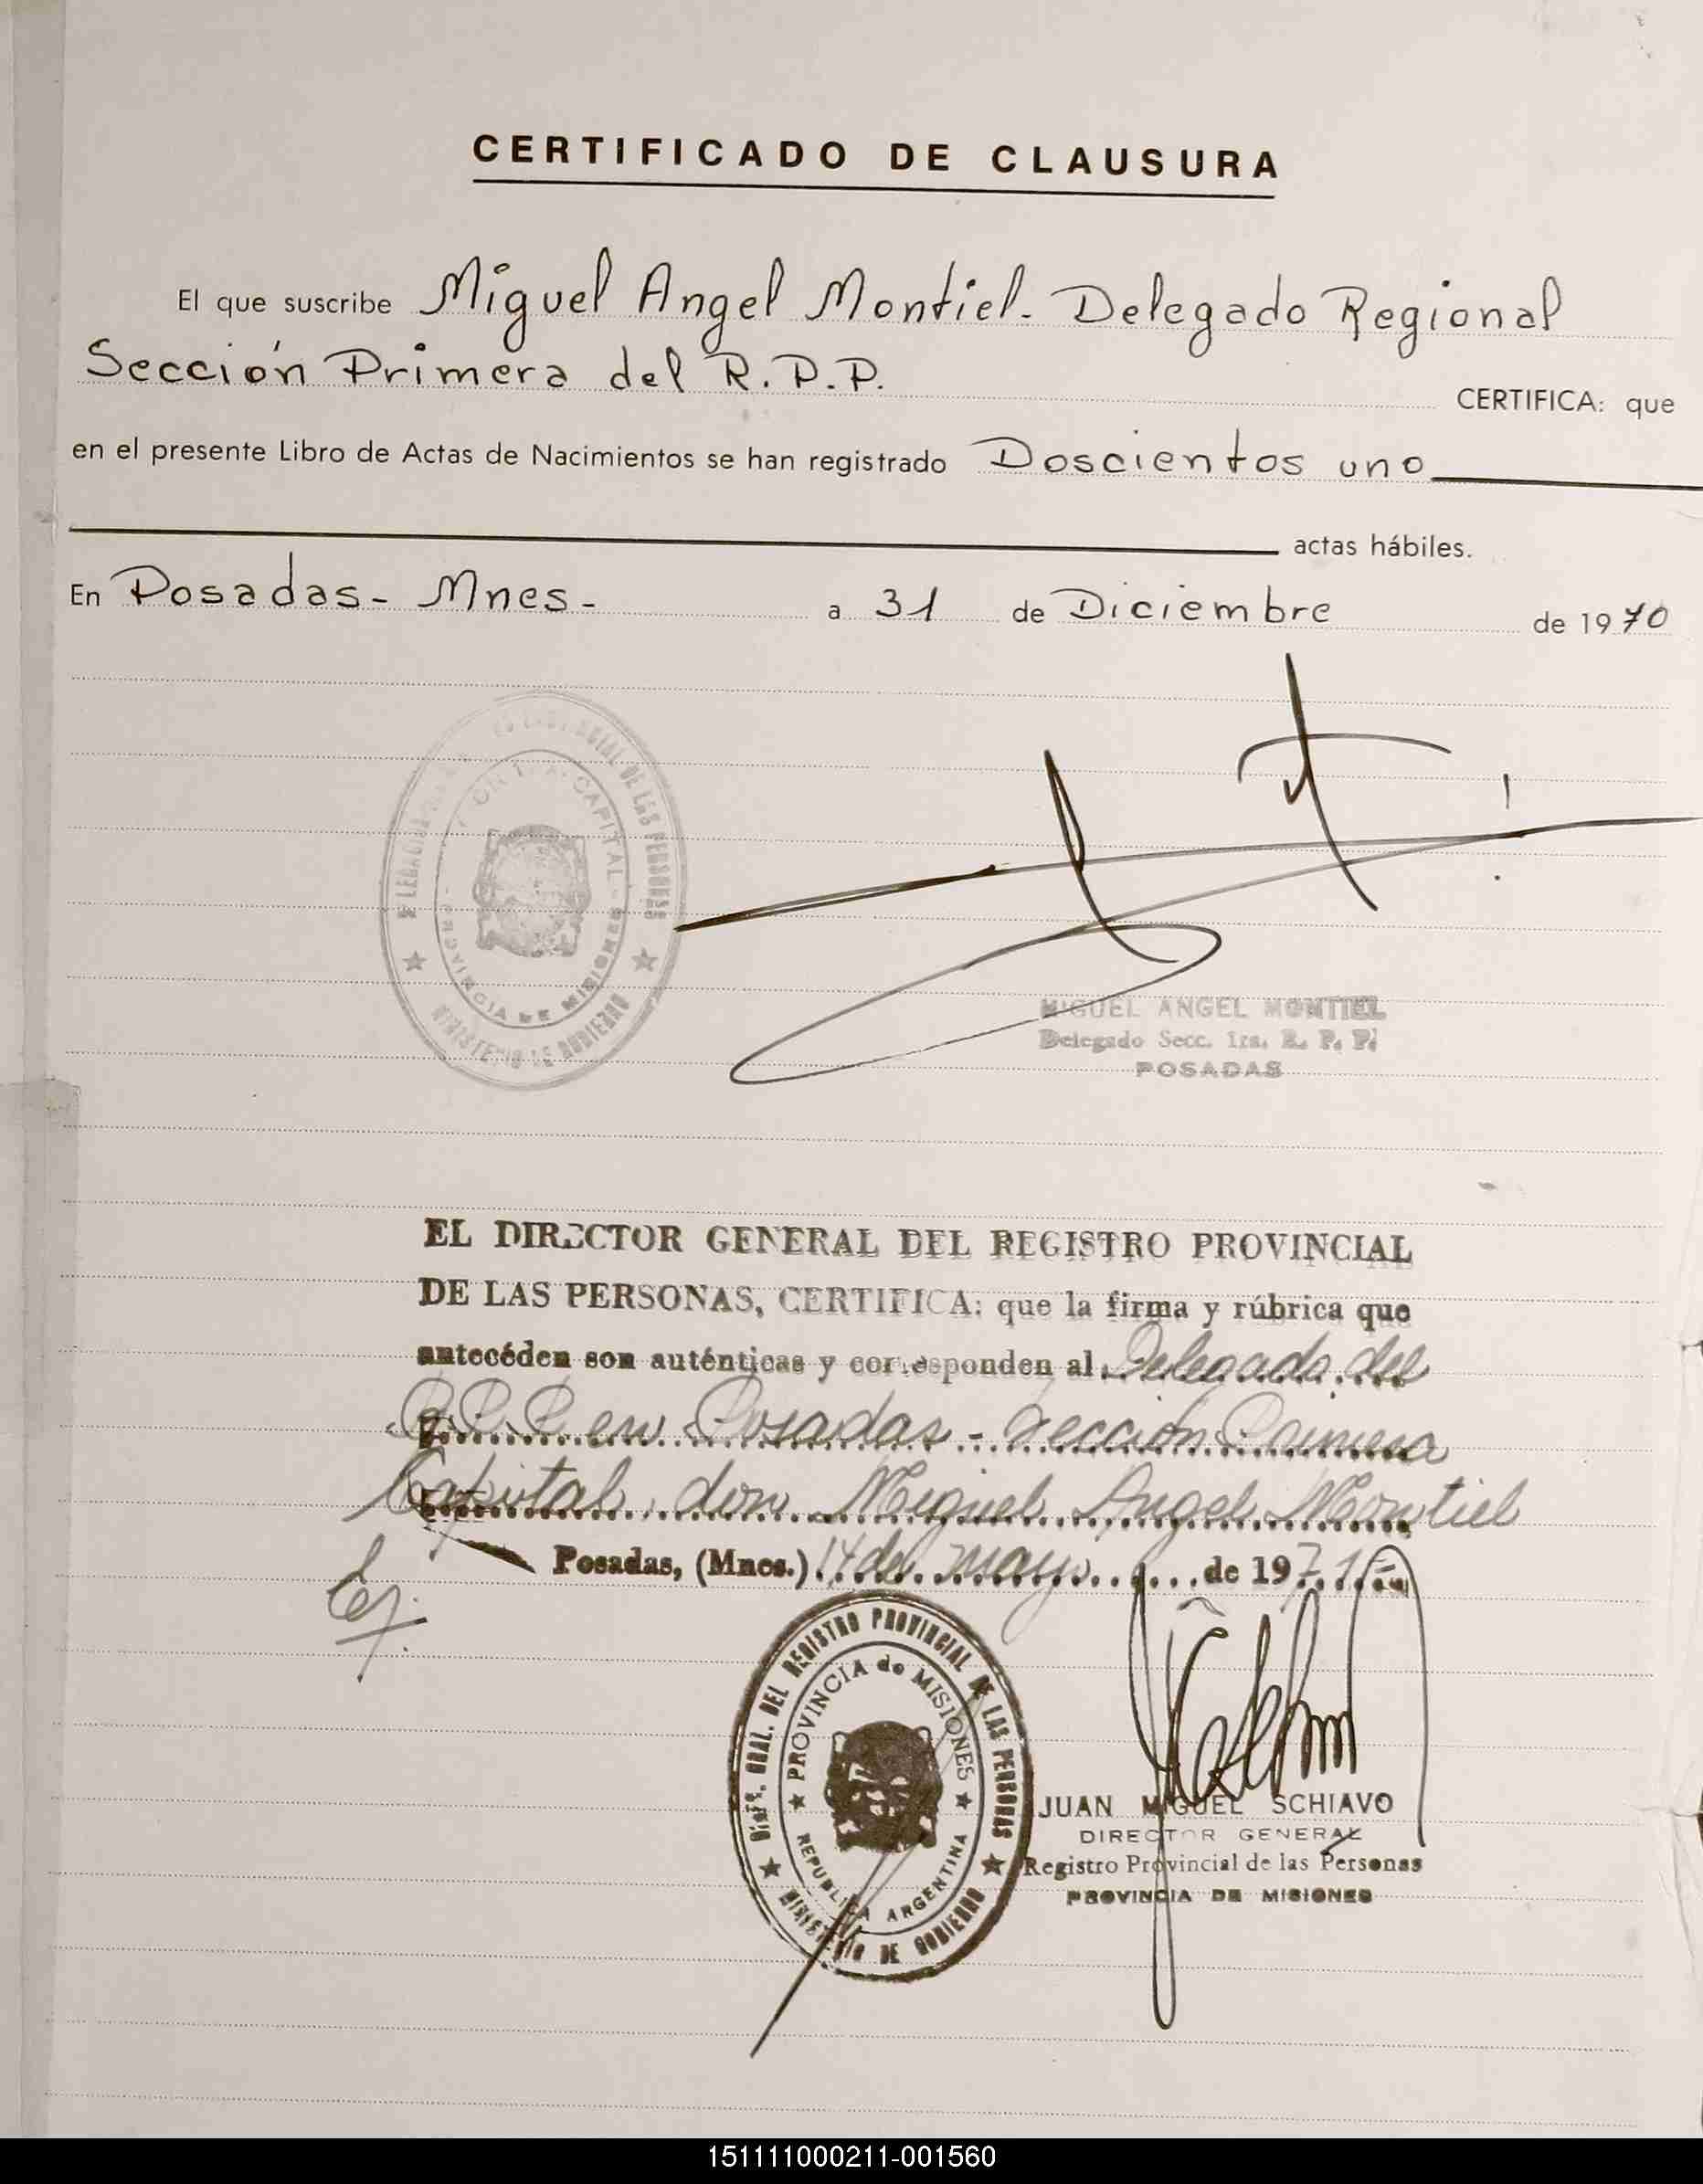 CERTIFICADO DE CLAUSURA
El que suscribe Miguel Angel Montiel. Delegado Regional
Sección Primera del R.P.P. CERTIFICA: que
en el presente Libro de Actas de Nacimientos se han registrado Doscientos uno
actas hábiles.
En Posadas - Mnes - a 31 de Diciembre de 1970
CAPITAL - PROVINCIA DE MISIONES
DE LAS PERSONAS
MINISTERIO DE GOBIERNO
MIGUEL ANGEL MONTIEL
Delegado Secc. 1ra. R. P. P.
POSADAS
EL DIRECTOR GENERAL DEL REGISTRO PROVINCIAL
DE LAS PERSONAS, CERTIFICA: que la firma y rúbrica que
antecéden son auténticas y corresponden al Delegado del
R.P.P. en Posadas - Sección Primera
Capital, don Miguel Angel Montiel
Posadas, (Mnes.) 14 de mayo de 1971
DIRE. GRAL. DEL REGISTRO PROVINCIAL DE LAS PERSONAS
PROVINCIA de MISIONES
REPUBLICA ARGENTINA
MINISTERIO DE GOBIERNO
JUAN MIGUEL SCHIAVO
DIRECTOR GENERAL
Registro Provincial de las Personas
PROVINCIA DE MISIONES
151111000211-001560